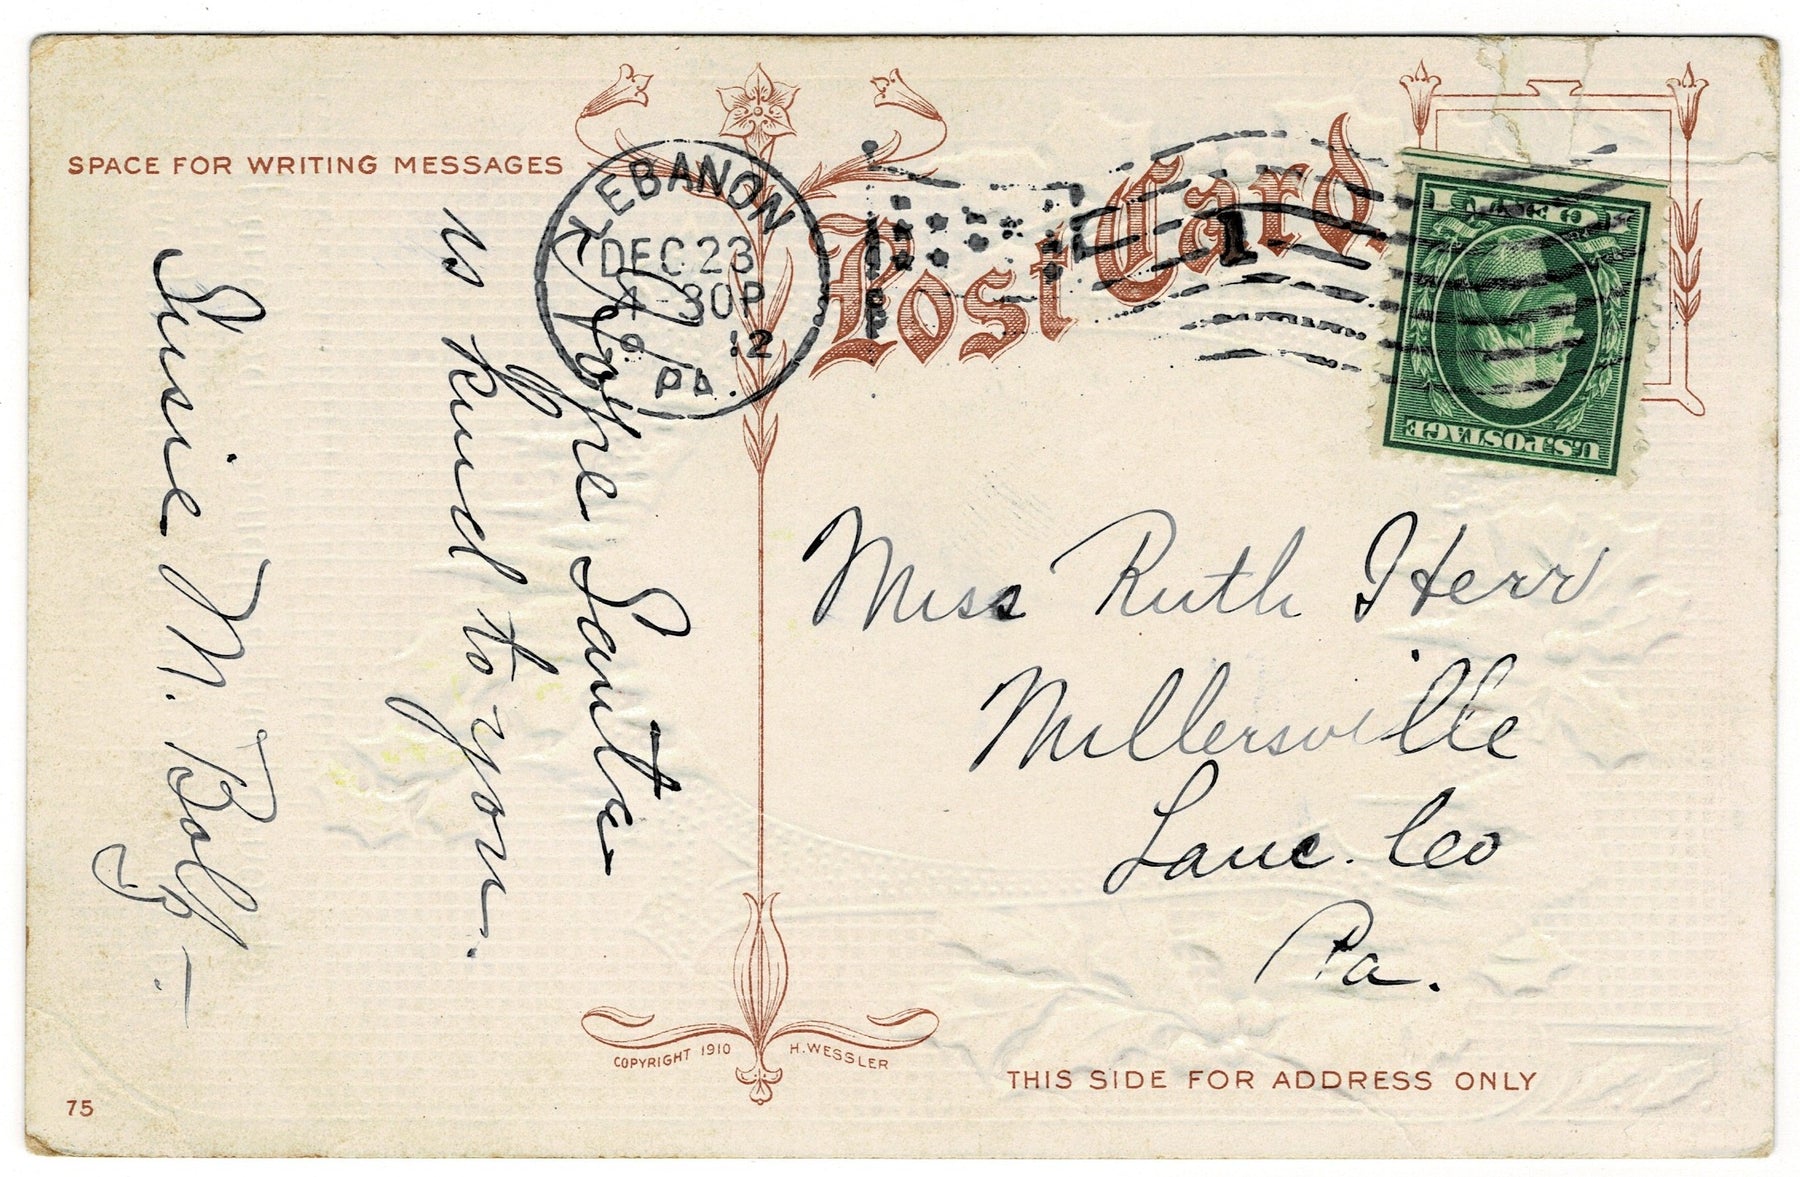 SPACE FOR WRITING MESSAGES
Post Card
LEBANON
DEC 23
4-30P
12
PA.
1
1 CENT 1
U.S. POSTAGE
Hope Santa
is kind to you.
Susie M. Bolt
Miss Ruth Herr
Millersville
Lanc. Co
Pa.
COPYRIGHT 1910 H. WESSLER
THIS SIDE FOR ADDRESS ONLY
75